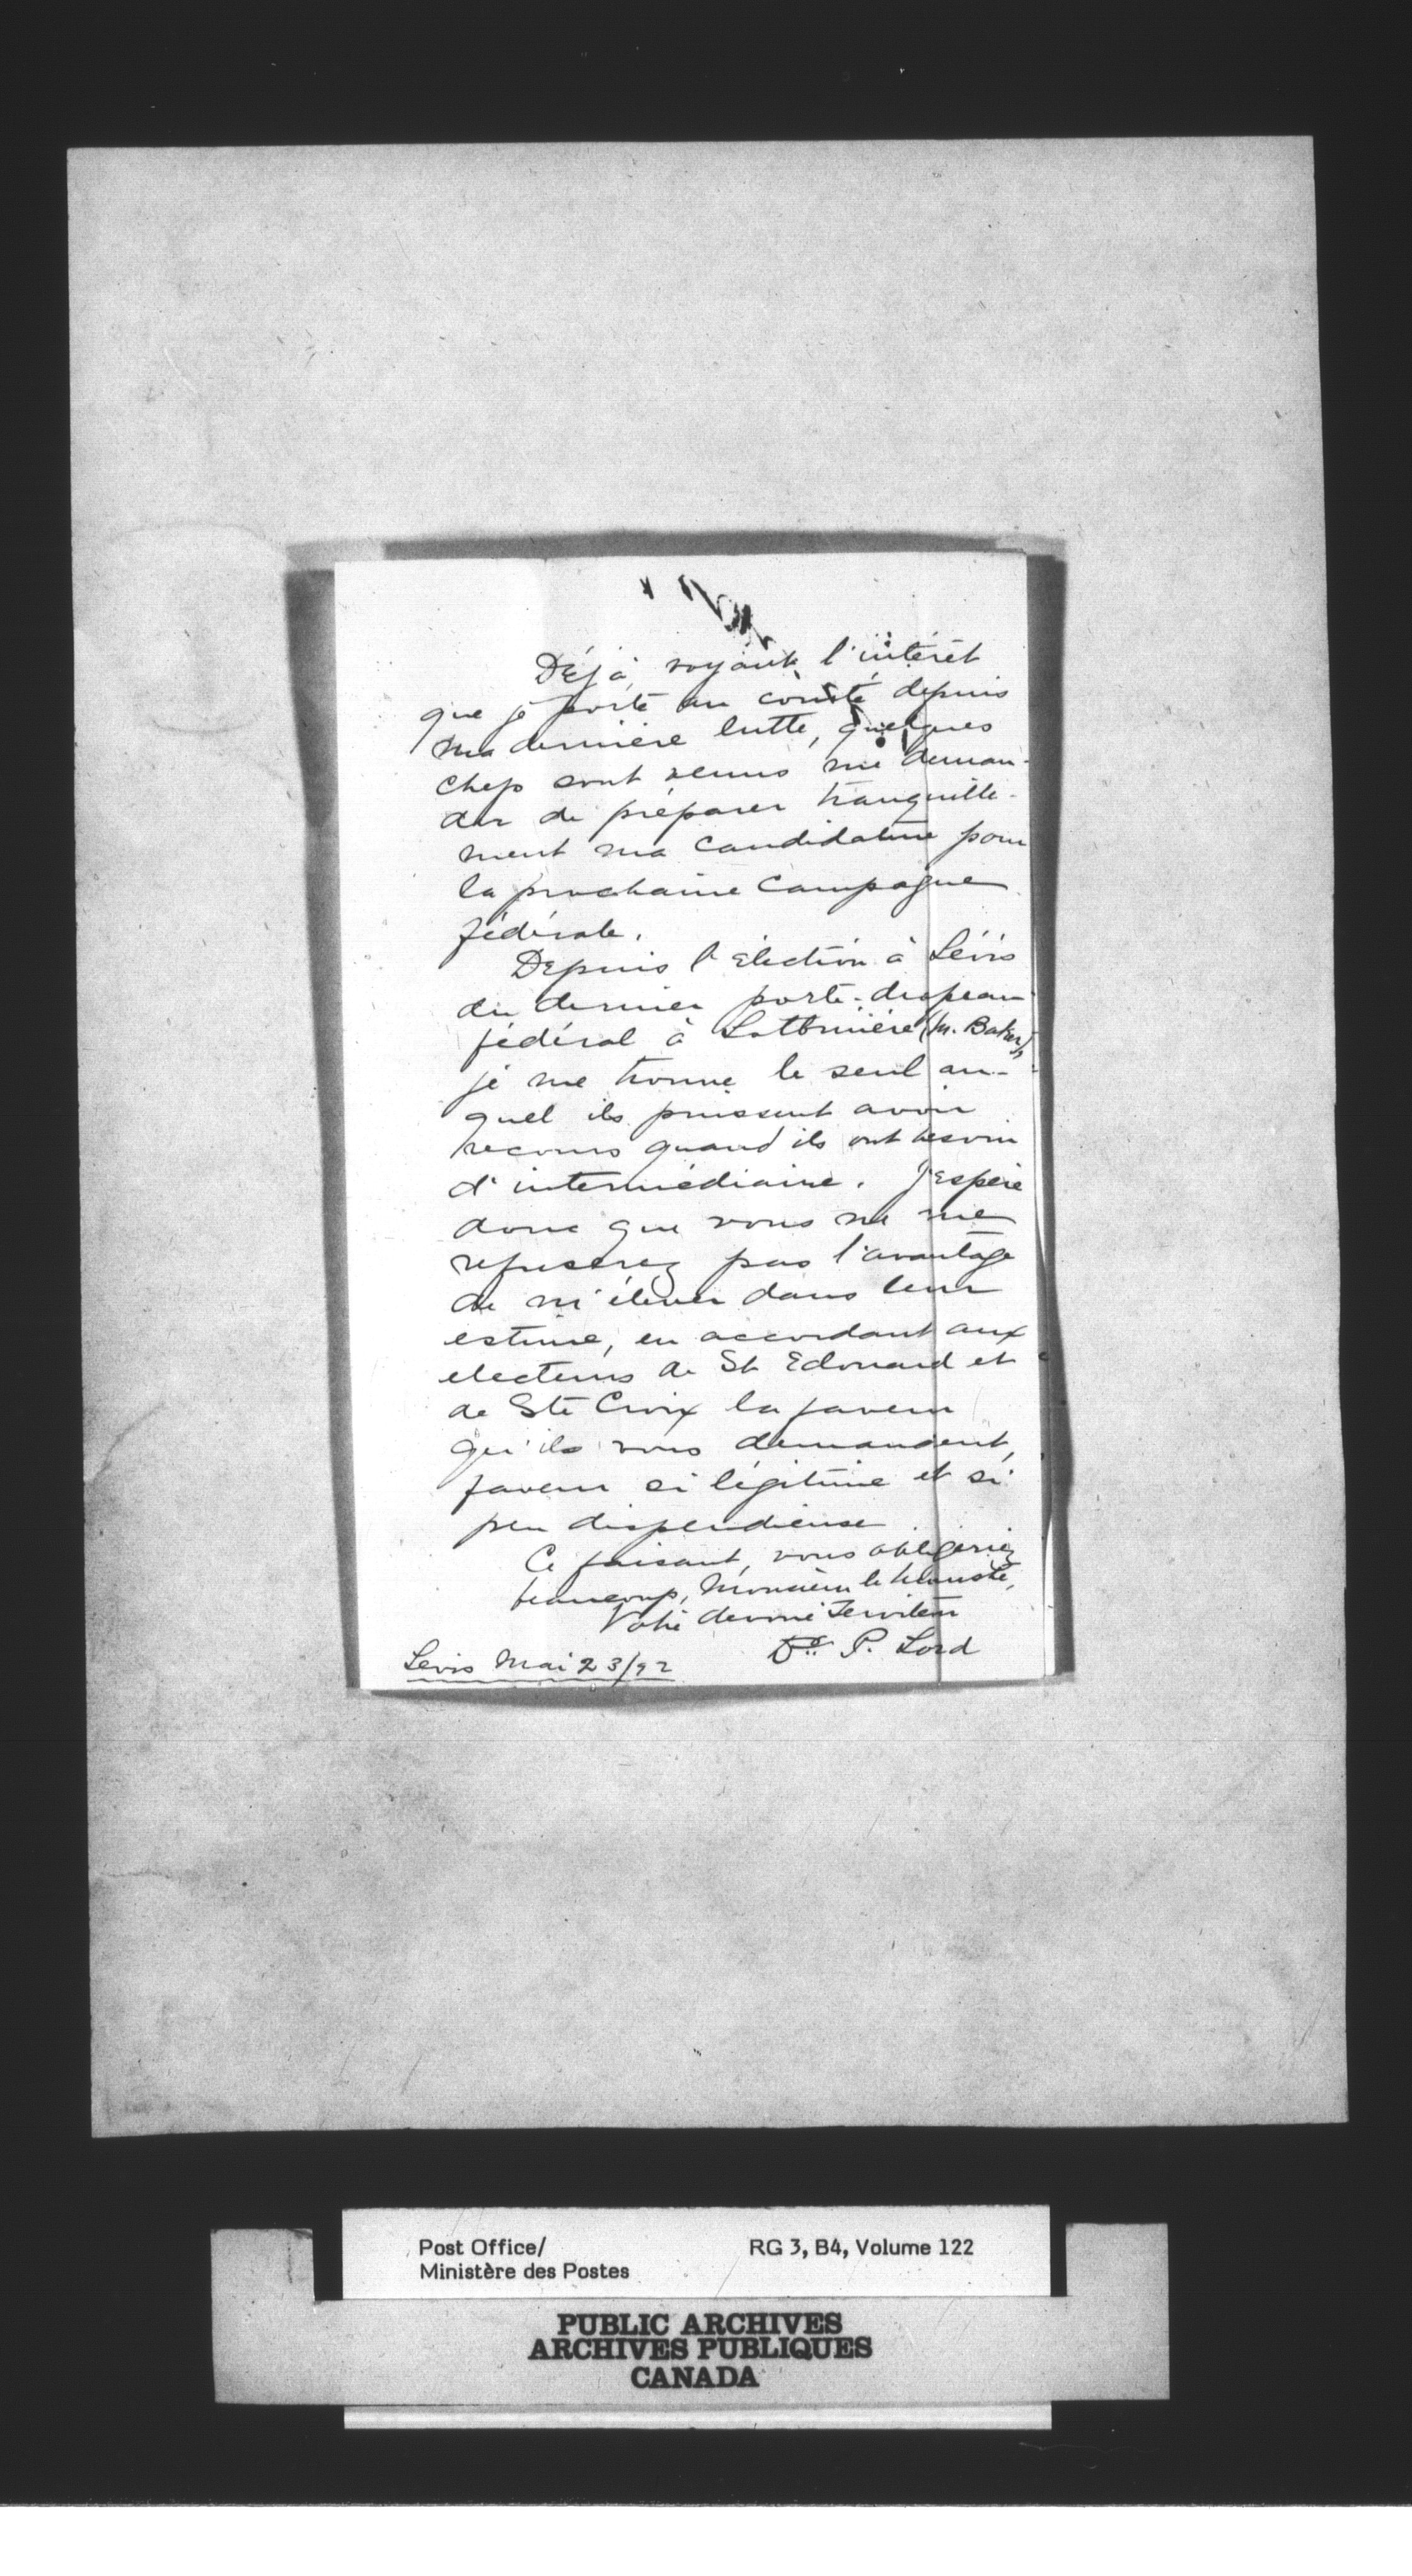 Déjà, voyant l'intérêt
que je porte au comté depuis
ma dernière lutte, quelques
chefs sont venus me deman-
der de préparer tranquille-
ment ma candidature pour
la prochaine campagne
fédérale.
Depuis l'élection à Lévis
du dernier porte-drapeau
fédéral à Lotbinière (M. Baker),
je me trouve le seul au-
quel ils puissent avoir
recours quand ils ont besoin
d'intermédiaire. J'espère
donc que vous ne me
refuserez pas l'avantage
de m'élever dans leur
estime, en accordant aux
electeurs de St Edouard et
de Ste Croix la faveur
qu'ils vous demandent,
faveur si légitime et si
peu dispendieuse.
Ce faisant, vous obligeriez
beaucoup, Monsieur le Ministre,
Votre dévoué Serviteur
Dr. P. Lord
Levis Mai 23/92
Post Office/ RG 3, B4, Volume 122
Ministère des Postes
PUBLIC ARCHIVES
ARCHIVES PUBLIQUES
CANADA